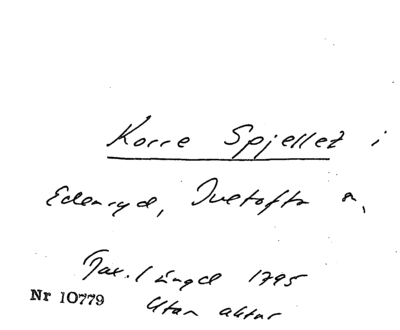 Korre Spjellet i
Edenryd, Ivetofta s,
Jax. längd 1795
Nr 10779 Utan aktar